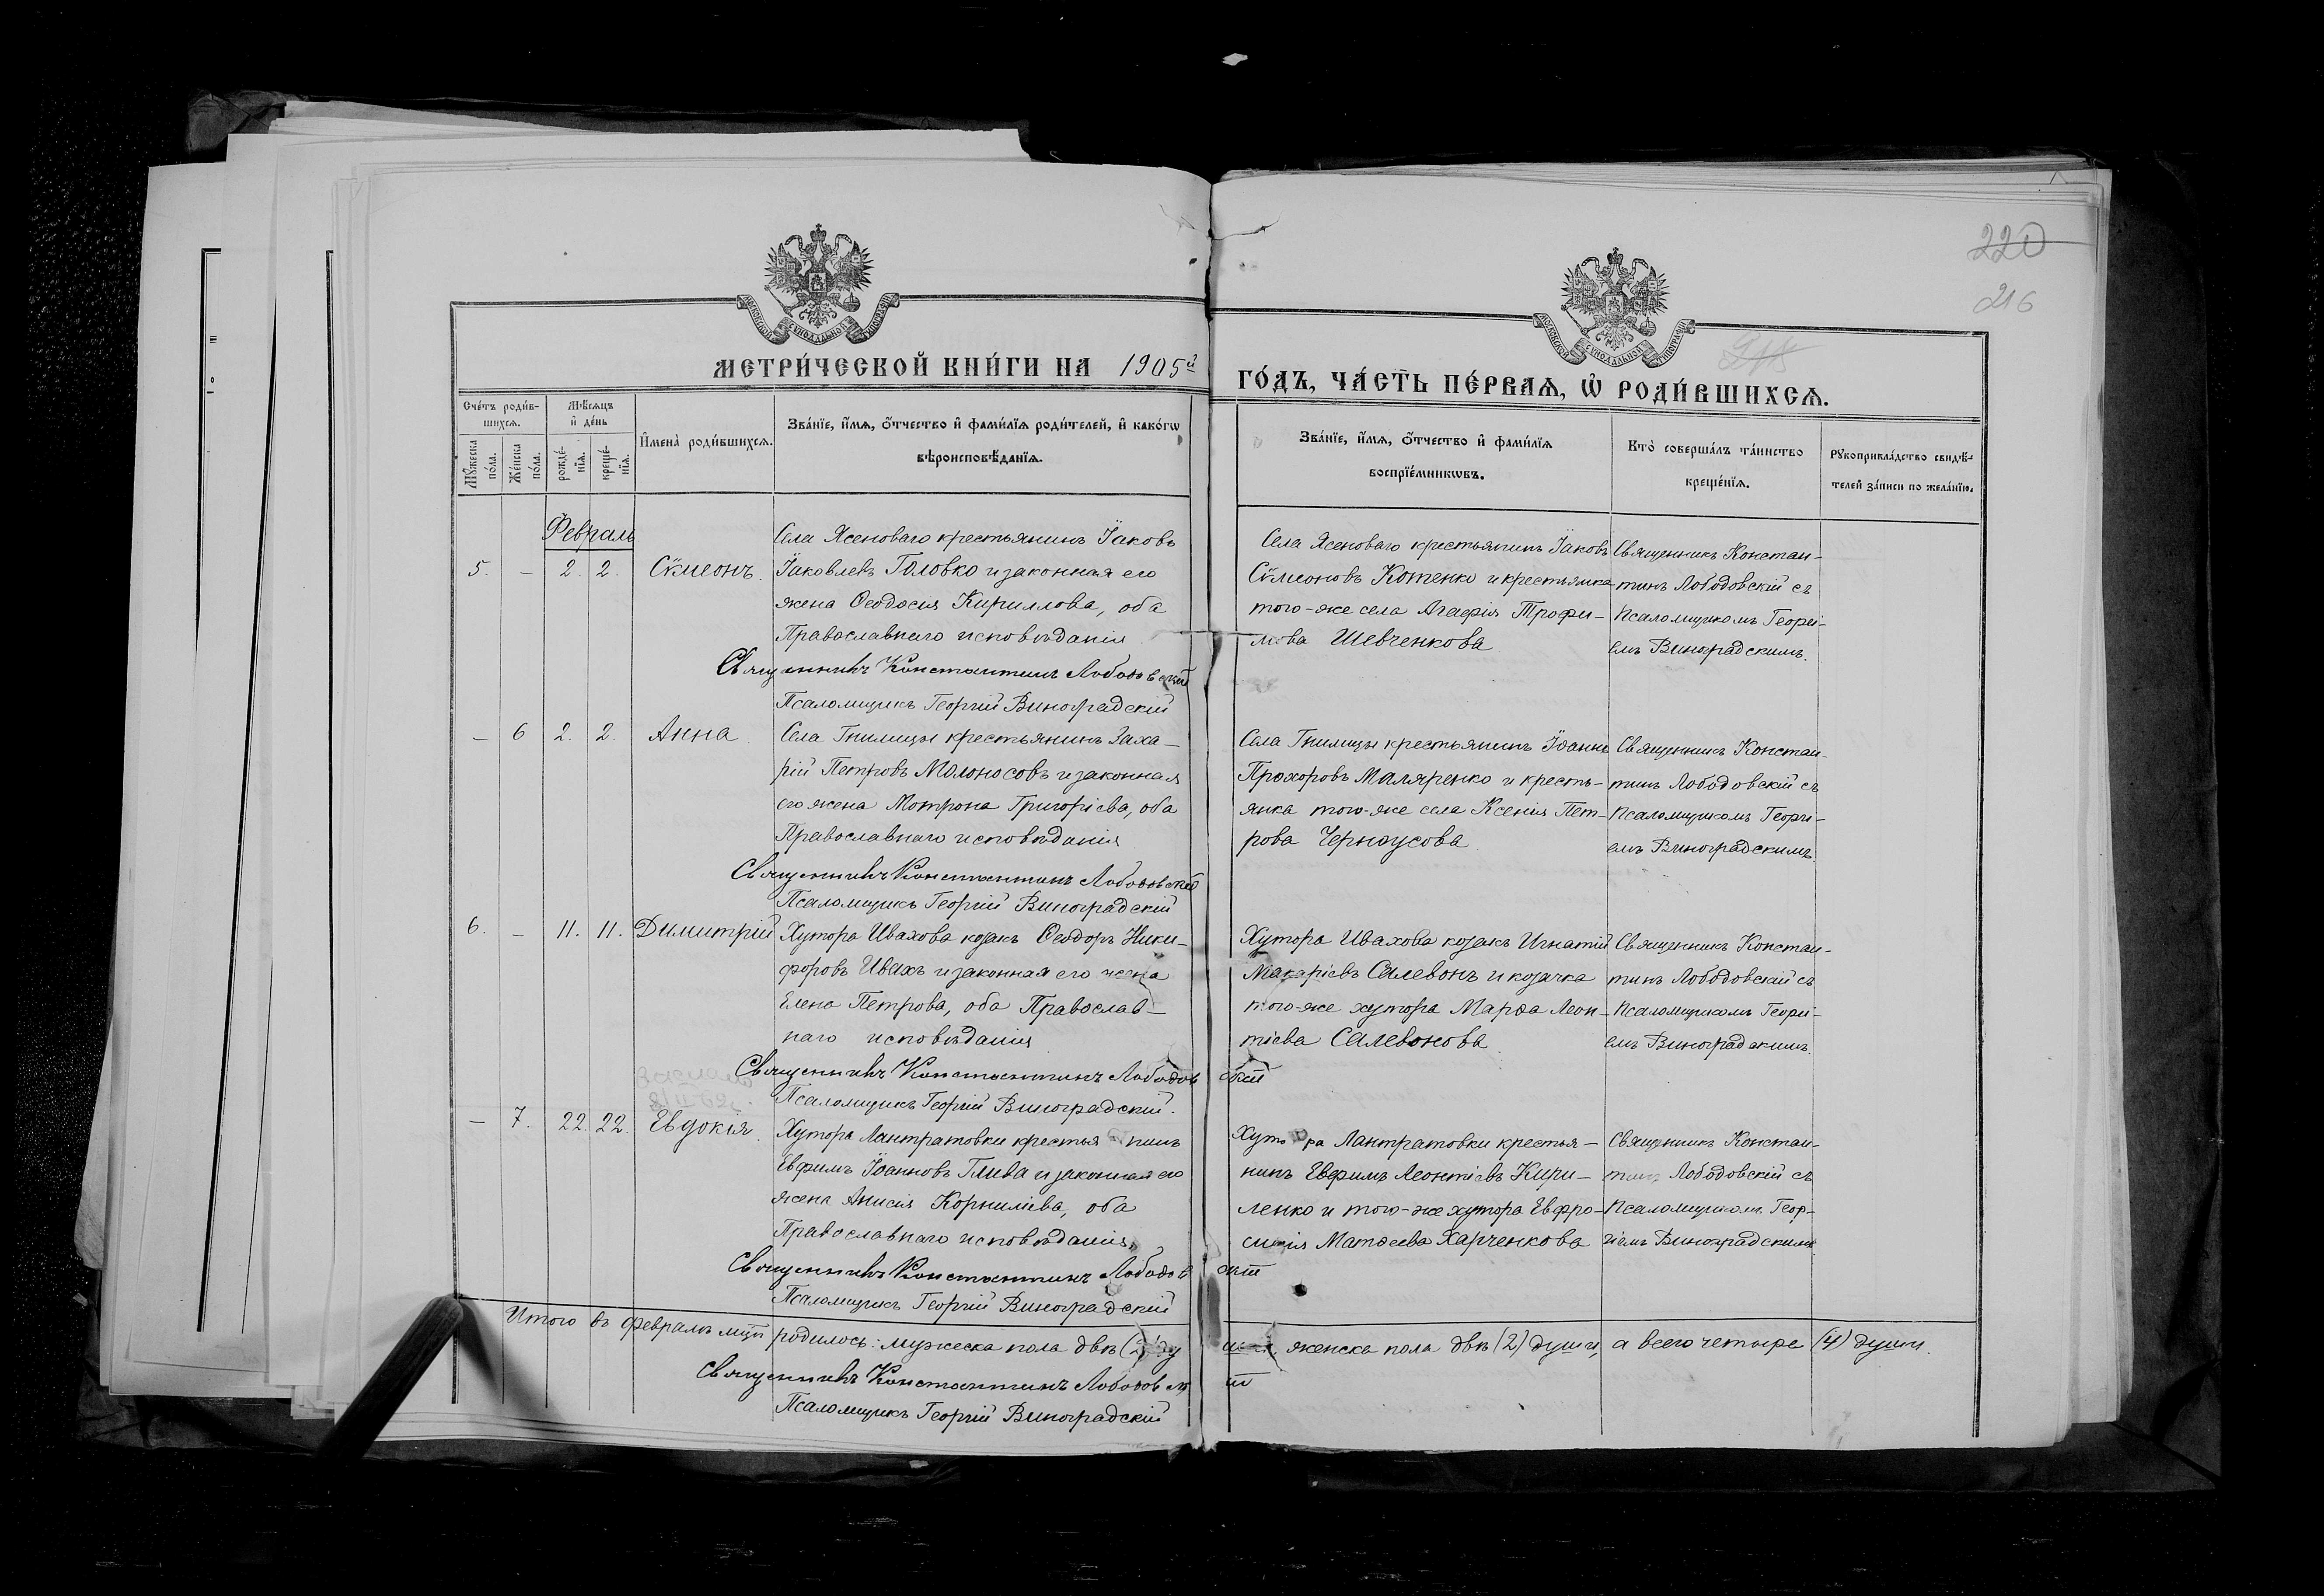 220
216
МЕТРИ́ЧЕСКОЙ КНИ́ГИ НА 1905й
ГО́ДЪ, ЧА́СТЬ ПЕ́РВАЯ, Ѡ РОДИ́ВШИХСЯ.
Сче́тъ роди́вшихся.
Мѣ́сяцъ и де́нь
Имена̀ роди́вшихся.
Зва́нїе, и́мя, о́тчество и фами́лїя роди́телей, и како́гѡ
вѣроисповѣ́данїя.
Му́жеска по́ла.
Же́нска по́ла.
рожде́нїя.
креще́нїя.
Зва́нїе, и́мя, о́тчество и фами́лїя
воспрїе́мникѡвъ.
Кто̀ соверша́лъ та́инство
креще́нїя.
Рукоприкла́дство свидѣ́-
телей за́писи по жела́нїю.
Февраль
5. — 2. 2. Сѷмеонъ.
Села Ясеноваго крестьянинъ Іаковъ
Іаковлевъ Головко и законная его
жена Ѳеодосія Кириллова, оба
Православнаго исповѣданія
Священникъ Константинъ Лободовскій
Псаломщикъ Георгій Виноградскій
Села Ясеноваго крестьянинъ Іаковъ
Сѷмеоновъ Котенко и крестьянка
того-же села Агафія Трофи-
мова Шевченкова
Священникъ Констан-
тинъ Лободовскій съ
псаломщикомъ Георгі-
емъ Виноградскимъ.
— 6 2. 2. Анна
Села Гнилицы крестьянинъ Заха-
рій Петровъ Молоносовъ и законная
его жена Мотрона Григоріева, оба
Православнаго исповѣданія
Священникъ Константинъ Лободовскій
Псаломщикъ Георгій Виноградскій
Села Гнилицы крестьянинъ Іоаннъ
Прохоровъ Маляренко и кресть-
янка того-же села Ксенія Пет-
рова Черноусова
Священникъ Констан-
тинъ Лободовскій съ
псаломщикомъ Георгі-
емъ Виноградскимъ.
6. — 11. 11. Димитрій
Хутора Ивахова козакъ Ѳеодоръ Ники-
форовъ Ивахъ и законная его жена
Елена Петрова, оба Православ-
наго исповѣданія
Священникъ Константинъ Лободовскій
Псаломщикъ Георгій Виноградскій.
Хутора Ивахова козакъ Игнатій
Макаріевъ Салевонъ и козачка
того-же хутора Марѳа Леон-
тіева Салевонова
Священникъ Констан-
тинъ Лободовскій съ
псаломщикомъ Георгі-
емъ Виноградскимъ.
— 7. 22. 22. Евдокія
Хутора Лантратовки крестьянинъ
Евфимъ Іоанновъ Глива и законная его
жена Анисія Корниліева, оба
Православнаго исповѣданія
Священникъ Константинъ Лободовскій
Псаломщикъ Георгій Виноградскій
Хутора Лантратовки крестья-
нинъ Евфимъ Леонтіевъ Кири-
ленко и того-же хутора Евфро-
синія Матѳеева Харченкова
Священникъ Констан-
тинъ Лободовскій съ
псаломщикомъ Геор-
гіемъ Виноградскимъ
Итого въ февралѣ мцѣ родилось: мужеска пола двѣ (2) души, женска пола двѣ (2) души, а всего четыре (4) души.
Священникъ Константинъ Лободовскій
Псаломщикъ Георгій Виноградскій